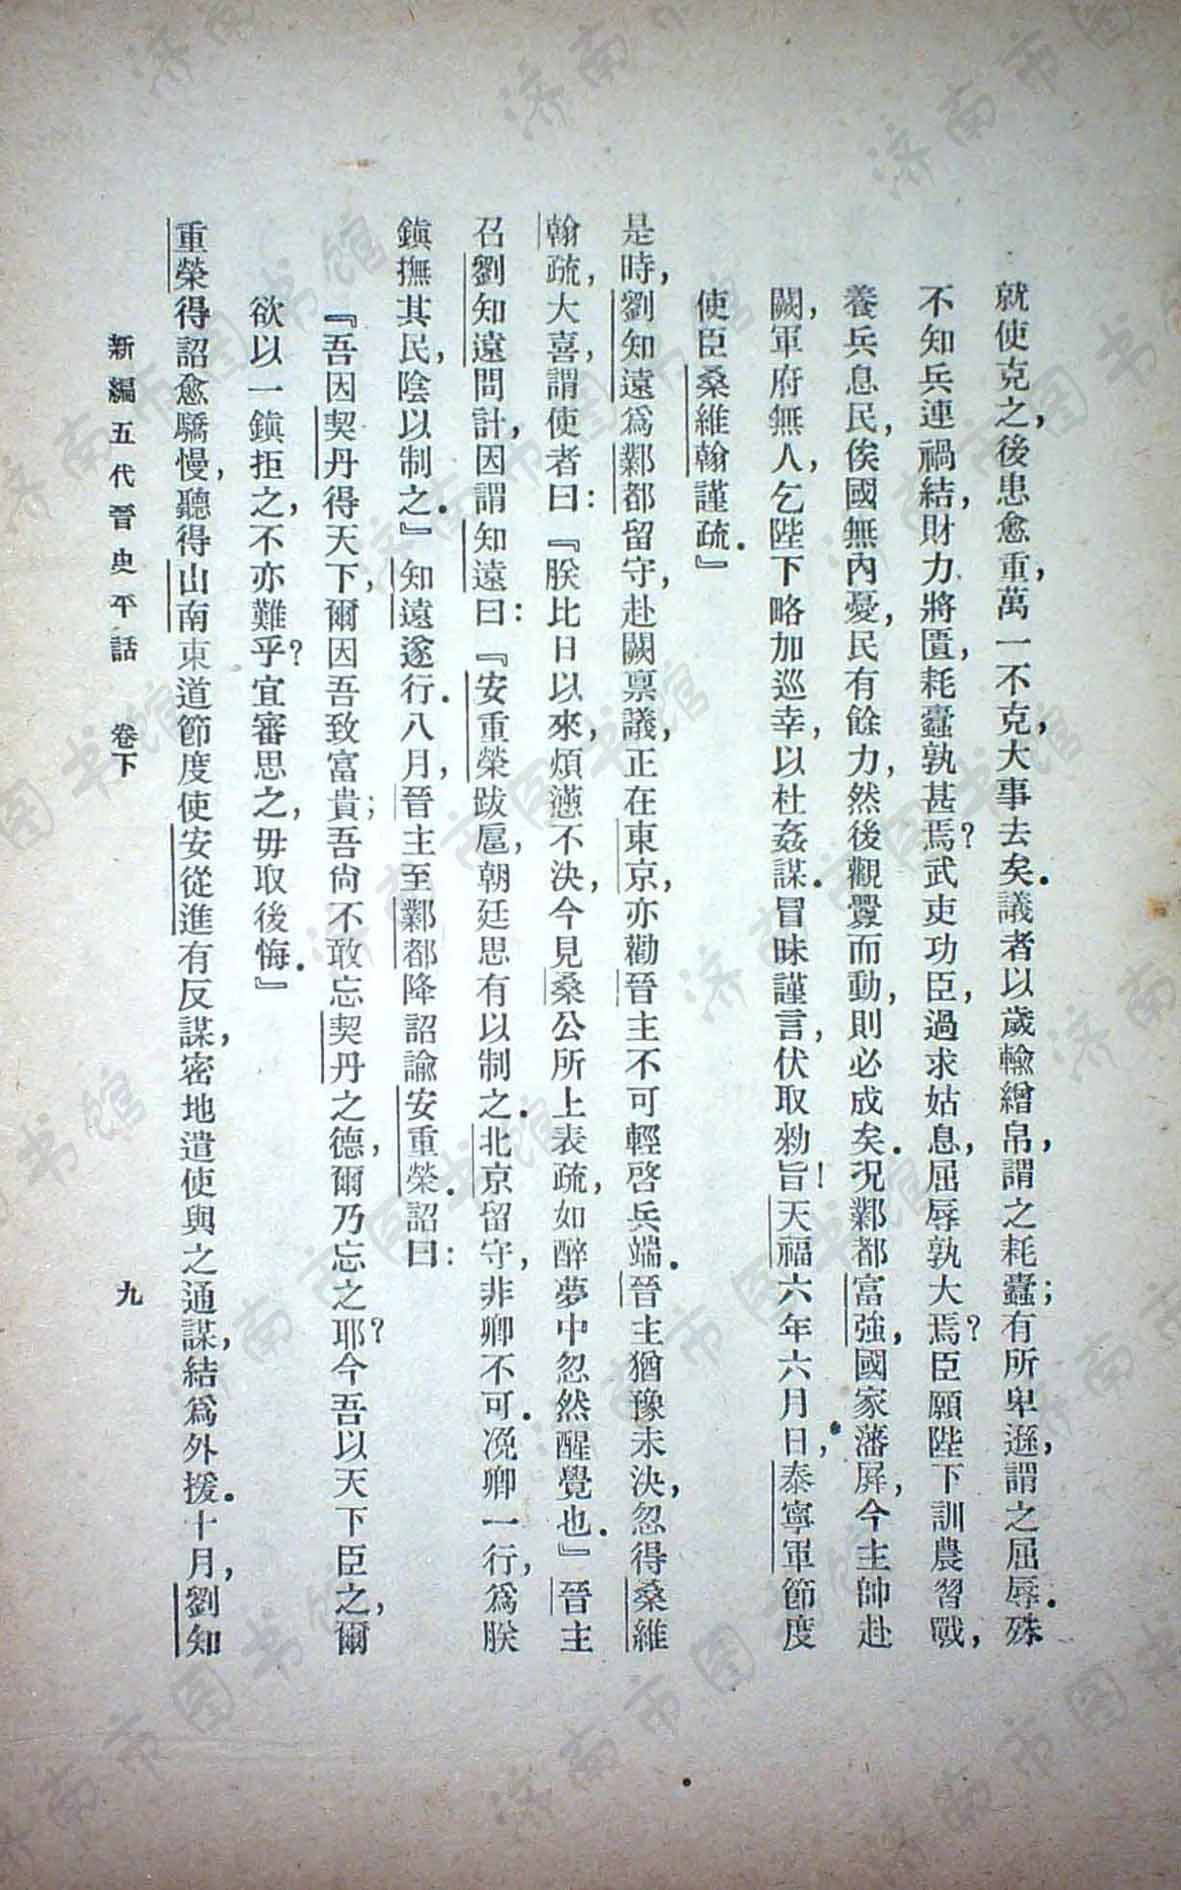 就使克之，後患愈重，萬一不克，大事去矣．議者以歲輸繒帛，謂之耗蠹；有所卑遜，謂之屈辱．殊
不知兵連禍結，財力將匱，耗蠹孰甚焉？武吏功臣，過求姑息，屈辱孰大焉？臣願陛下訓農習戰，
養兵息民，俟國無內憂，民有餘力，然後觀釁而動，則必成矣．況鄴都富強，國家藩屏，今主帥赴
闕，軍府無人，乞陛下略加巡幸，以杜姦謀．冒昧謹言，伏取勑旨！天福六年六月日，泰寧軍節度
使臣桑維翰謹疏．』
是時，劉知遠爲鄴都留守，赴闕禀議，正在東京，亦勸晉主不可輕啓兵端．晉主猶豫未決，忽得桑維
翰疏，大喜，謂使者曰：『朕比日以來，煩懣不決，今見桑公所上表疏，如醉夢中忽然醒覺也．』晉主
召劉知遠問計，因謂知遠曰：『安重榮跋扈，朝廷思有以制之．北京留守，非卿不可．凂卿一行，爲朕
鎭撫其民，陰以制之．』知遠遂行．八月，晉主至鄴都降詔諭安重榮．詔曰：
『吾因契丹得天下，爾因吾致富貴；吾尙不敢忘契丹之德，爾乃忘之耶？今吾以天下臣之，爾
欲以一鎭拒之，不亦難乎？宜審思之，毋取後悔．』
重榮得詔愈驕慢，聽得山南東道節度使安從進有反謀，密地遣使與之通謀，結爲外援．十月，劉知
新編五代晉史平話　卷下　九
濟南市图书馆